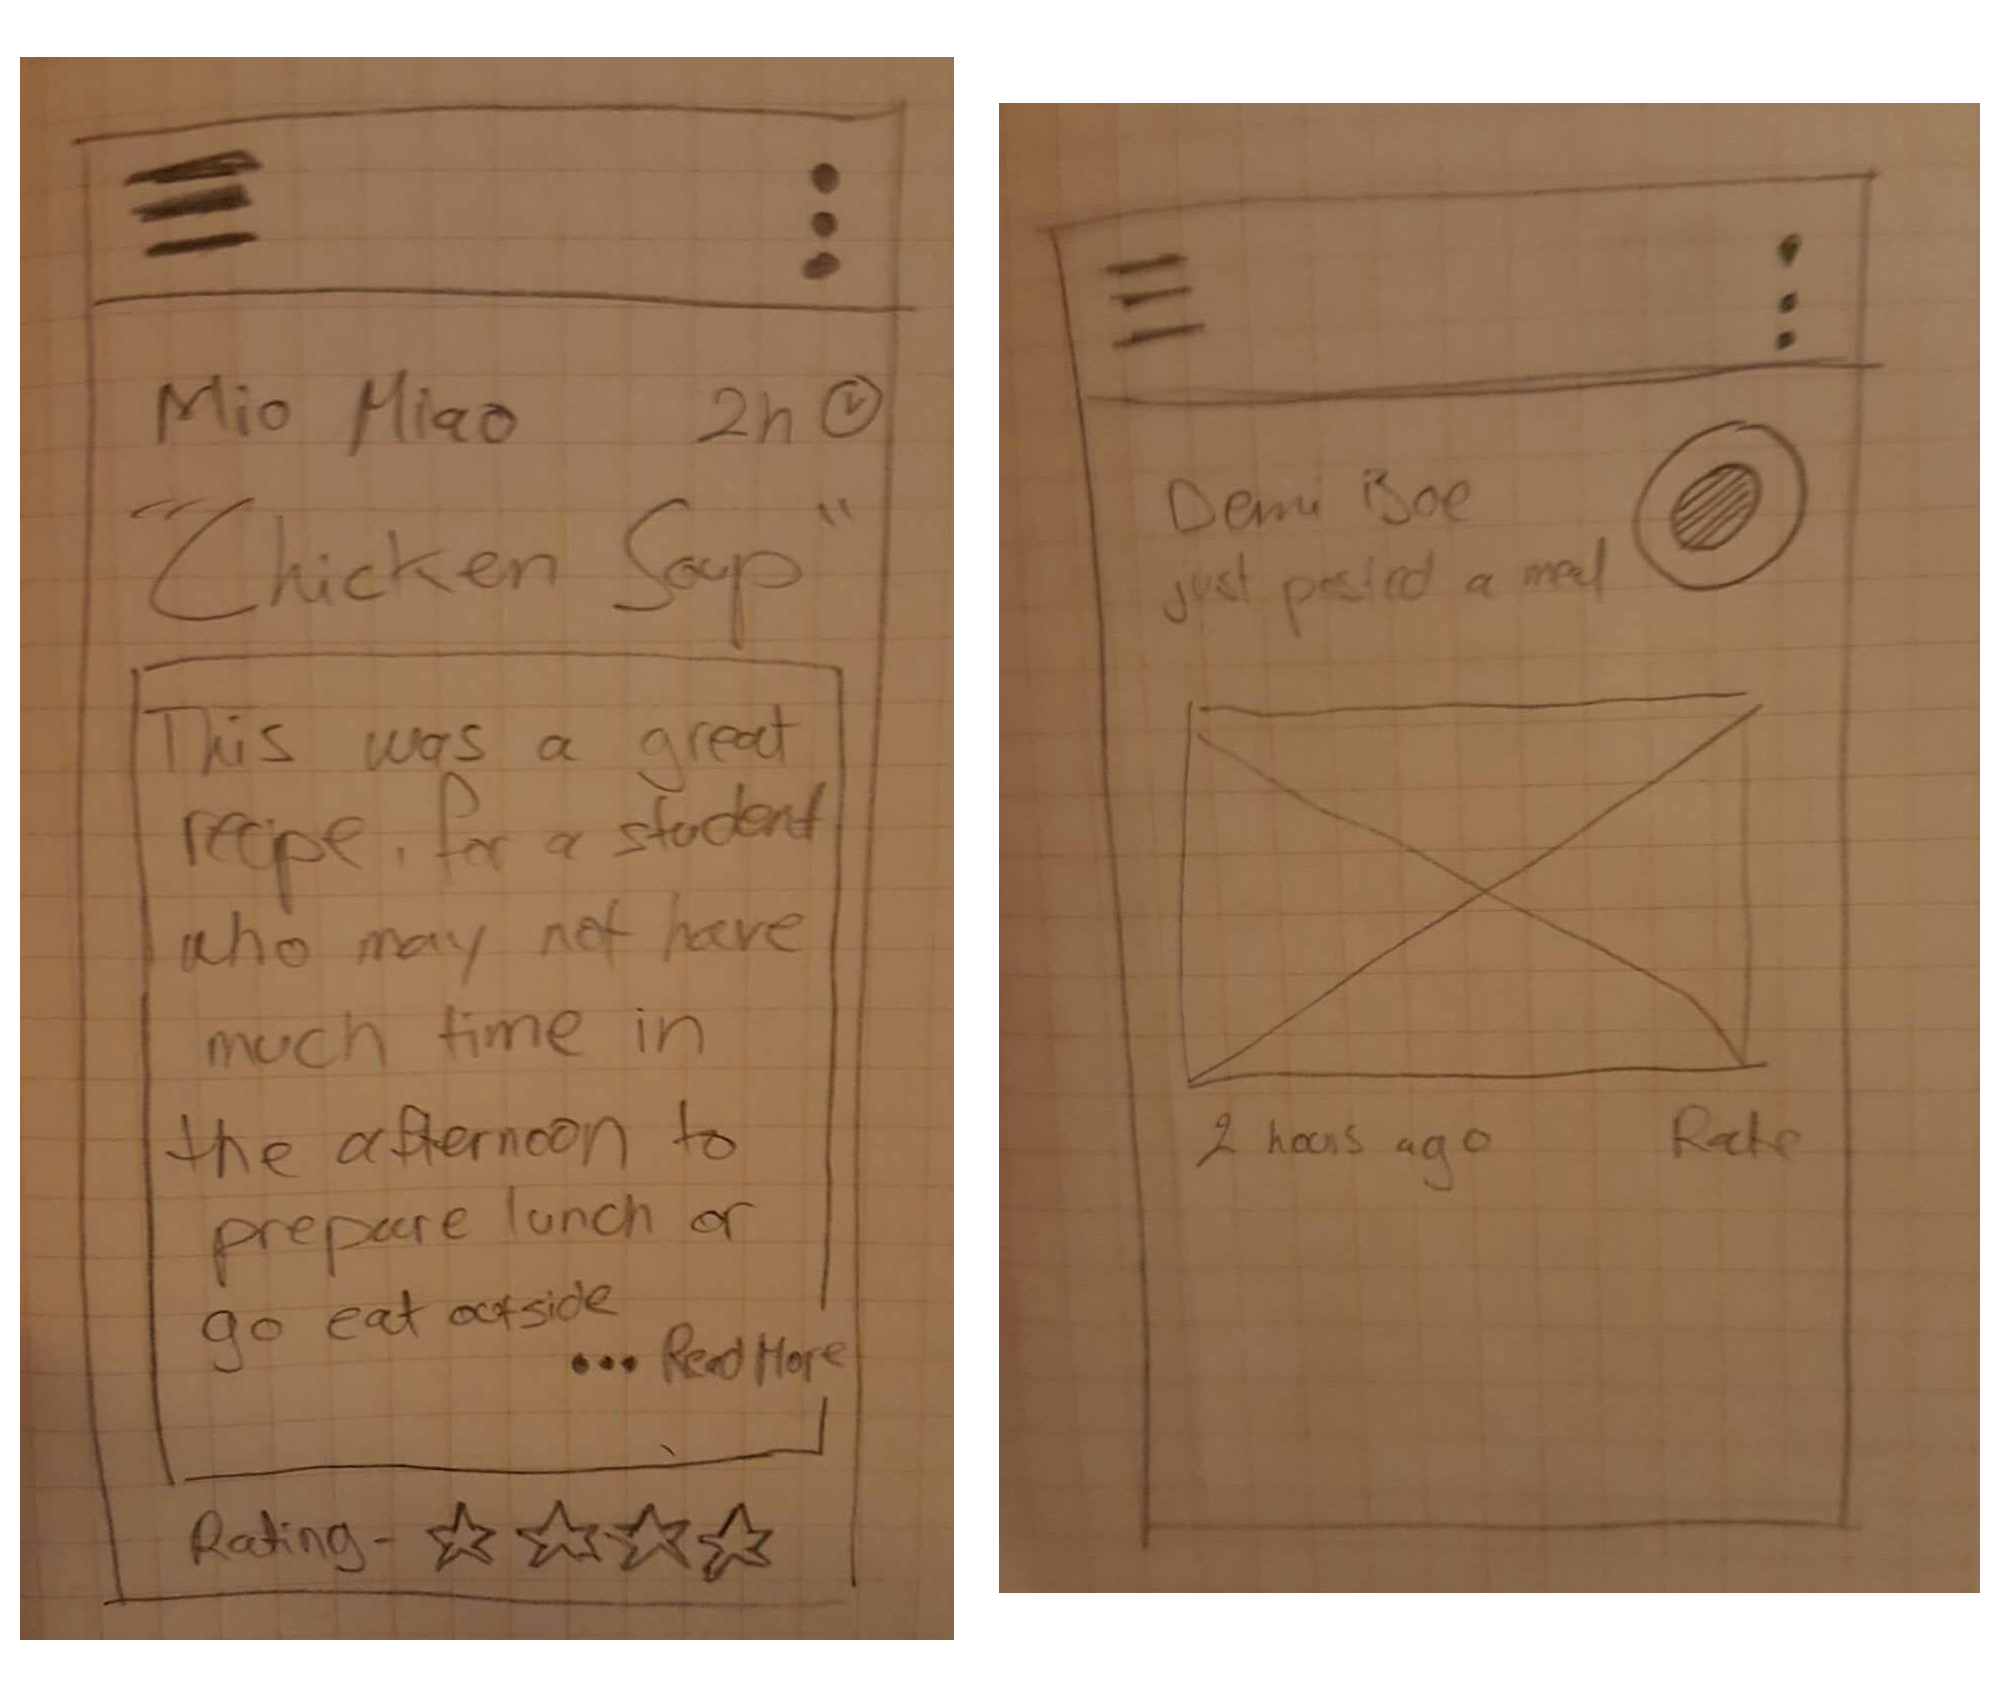 Mio Miao 2h
"Chicken Soup"
This was a great
recipe, for a student
who may not have
much time in
the afternoon to
prepare lunch or
go eat outside
... Read More
Rating -
Demi Boe
just posted a meal
2 hours ago Rate